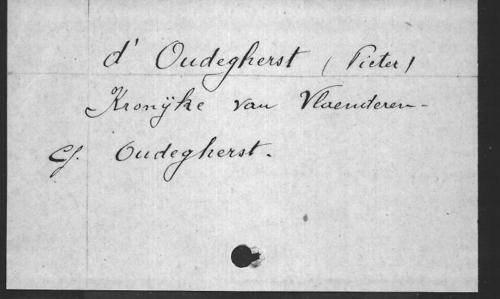 d' Oudegherst (Pieter)
Kronijke van Vlaenderen-
Cf. Oudegherst.